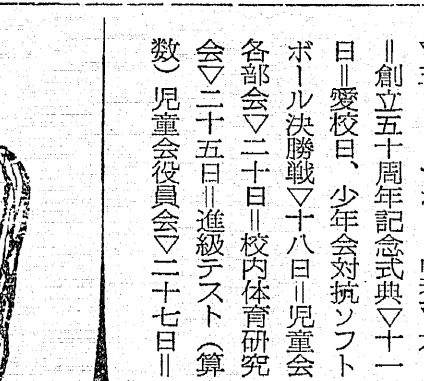 ＝創立五十周年記念式典▽十一
日＝愛校日、少年会対抗ソフト
ボール決勝戦▽十八日＝児童会
各部会▽二十日＝校内体育研究
会▽二十五日＝進級テスト（算
数）児童会役員会▽二十七日＝